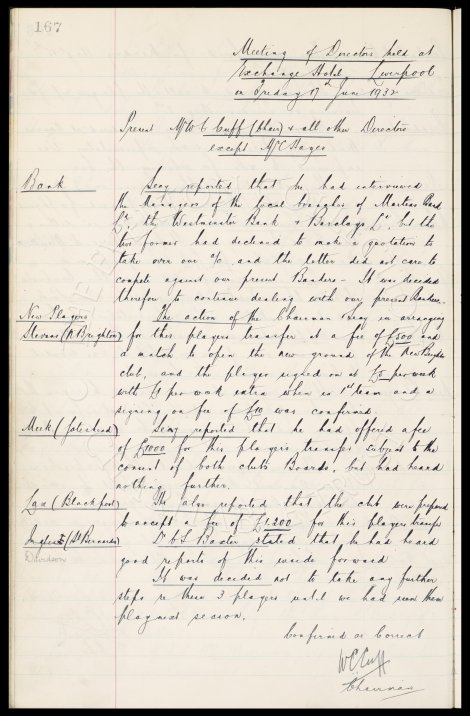 167
Meeting of Directors held at
Exchange Hotel, Liverpool
on Friday 17th June 1932
Present Mr W C Cuff (Chair) & all other Directors
except Mr C Hayes
Bank Secy reported that he had interviewed
the Managers of the local branches of Martins Bank
Ld, the Westminster Bank & Barclays Ld, but the
two former had declined to make a quotation to
take over our a/c and the latter did not care to
compete against our present Bankers - It was decided
therefore to continue dealing with our present Bankers.
New Players The action of the Chairman & Secy in arranging
Stevens (N. Brighton) for this players transfer at a fee of £500 and
a match to open the new ground of the New Brighton
club, and the player signed on at £5 per week
with £1 per week extra when in 1st team and a
signing on fee of £10 was confirmed.
Meek (Gateshead) Secy reported that he had offered a fee
of £1000 for this players transfer subject to the
consent of both clubs Boards, but had heard
nothing further.
Lax (Blackpool) He also reported that the club were prepared
to accept a fee of £1,200 for this players transfer
(St Bernards) Dr C S Baxter stated that he had heard
Davidson good reports of this inside forward
It was decided not to take any further
steps re these 3 players until we had seen them
play next season.
Confirmed as Correct
WCCuff
Chairman